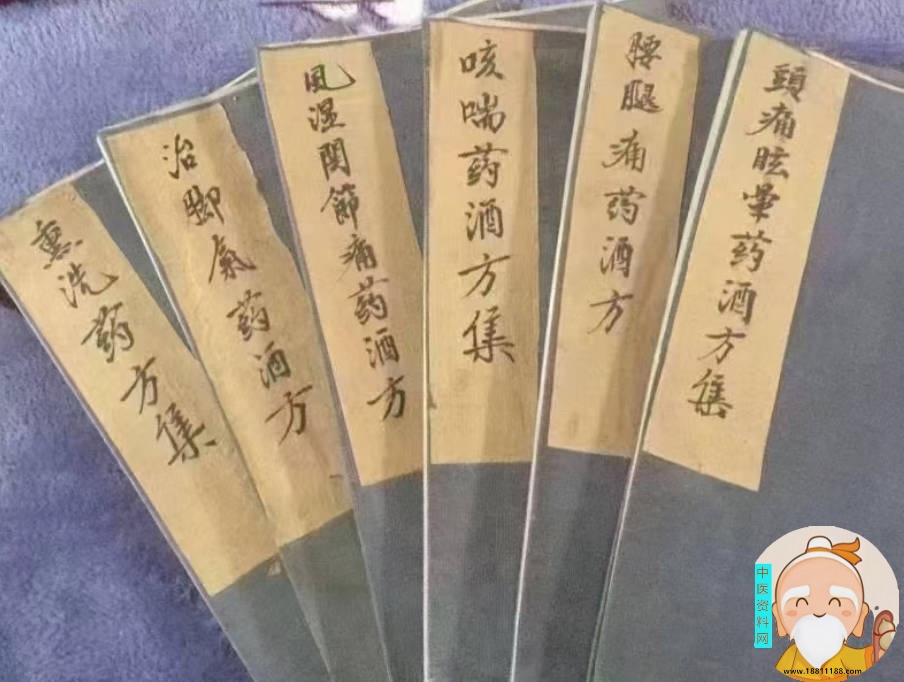 熏洗药方集
治脚氣药酒方
風湿関節痛药酒方
咳喘药酒方集
腰腿痛药酒方
頭痛眩暈药酒方集
中医资料网
www.18811188.com